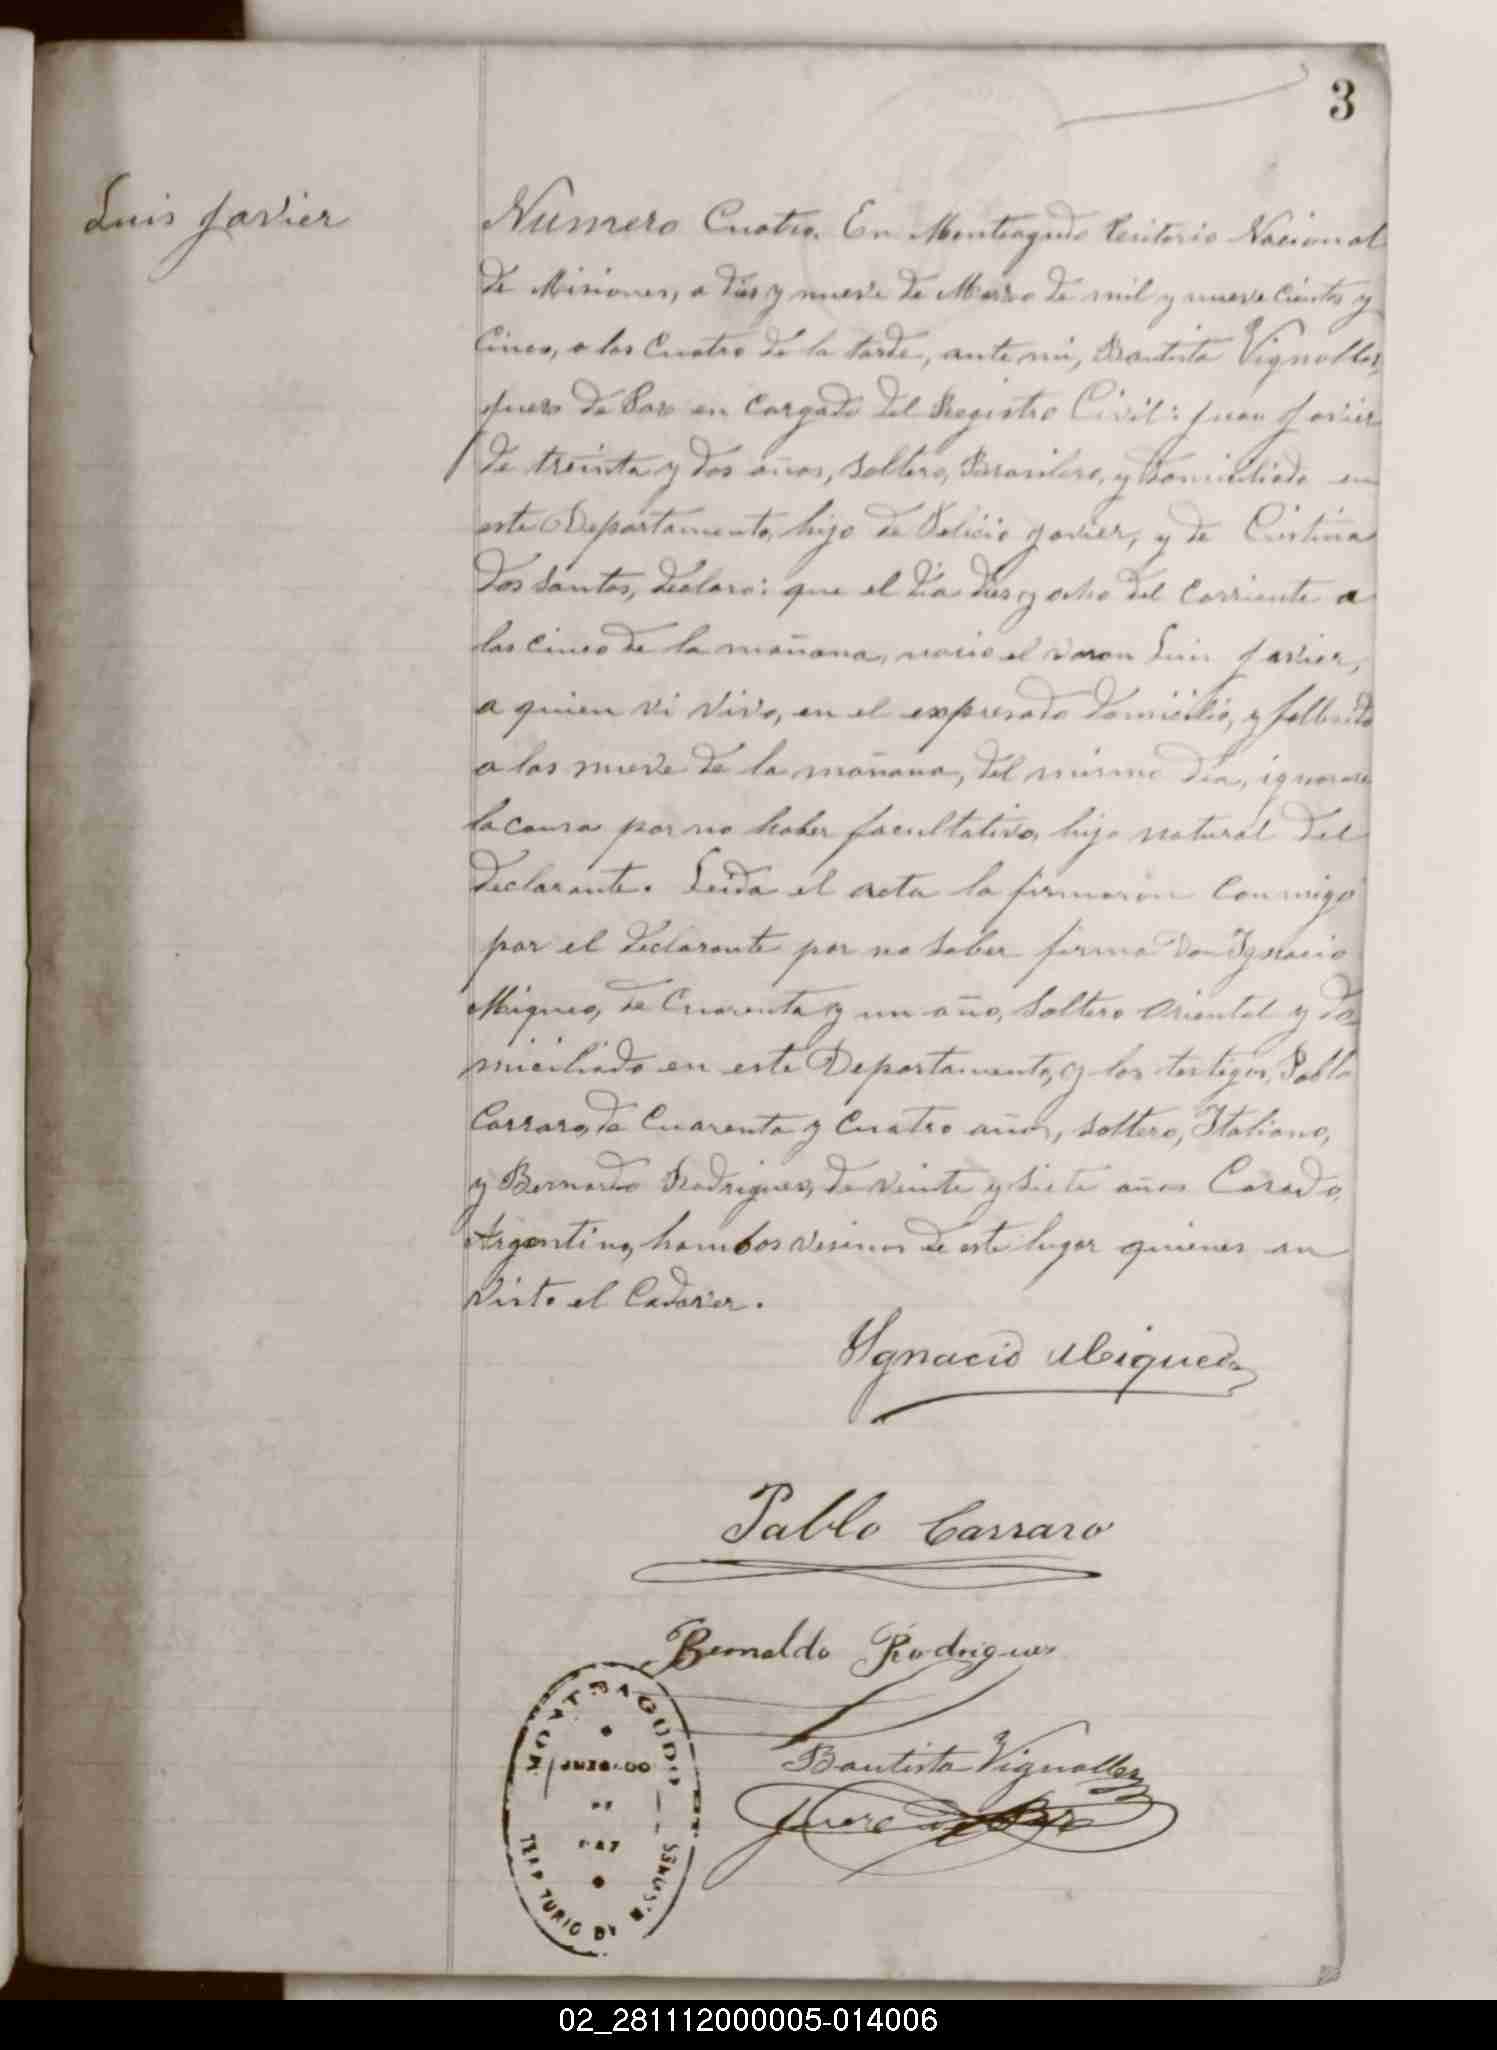 3
Luis Javier
Numero Cuatro. En Monteagudo Teritorio Nacional
de Misiones, a dies y nueve de Marzo de mil y nueve cientos y
Cinco, a las Cuatro de la tarde, ante mi, Bautista Vignolles,
Juez de Paz en cargado del Registro Civil: Juan Javier
de treinta y dos años, soltero, Brasilero, y domiciliado en
este Departamento, hijo de Felicio Javier, y de Cristina
dos Santos, declaro: que el dia dies y ocho del corriente a
las cinco de la mañana, nacio el varon Luis Javier,
a quien vi vivo, en el expresado domicilio, y fallecido
a las nueve de la mañana, del mismo dia, ignorase
la causa por no haber facultativo, hijo natural del
declarante. Leida el acta la firmaron conmigo
por el declarante por no saber firma Don Ygnacio
Migueo, de Cuarenta y un año, soltero oriental y do
miciliado en este Departamento, y los testigos, Pablo
Carraro, de Cuarenta y Cuatro años, soltero, Italiano,
y Bernardo Rodriguez, de veinte y siete años Casado,
Argentino, hambos vesinos de este lugar quienes an
visto el Cadaver.
Ygnacio
Pablo Carraro
Bernaldo Rodrigues
Bautista Vignolles
Juez de Paz
MONTEAGUDO
TERRITORIO DE MISIONES
02_281112000005-014006